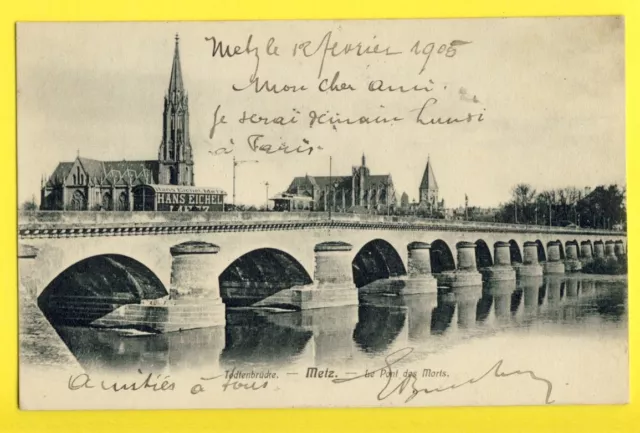 Metz le 12 février 1905
Mon cher ami.
Je seraï demain Lundi
à Paris.
Hans Eichel Metz
HANS EICHEL
Todtenbrücke. — Metz. — Le Pont des Morts.
Amitiés à tous